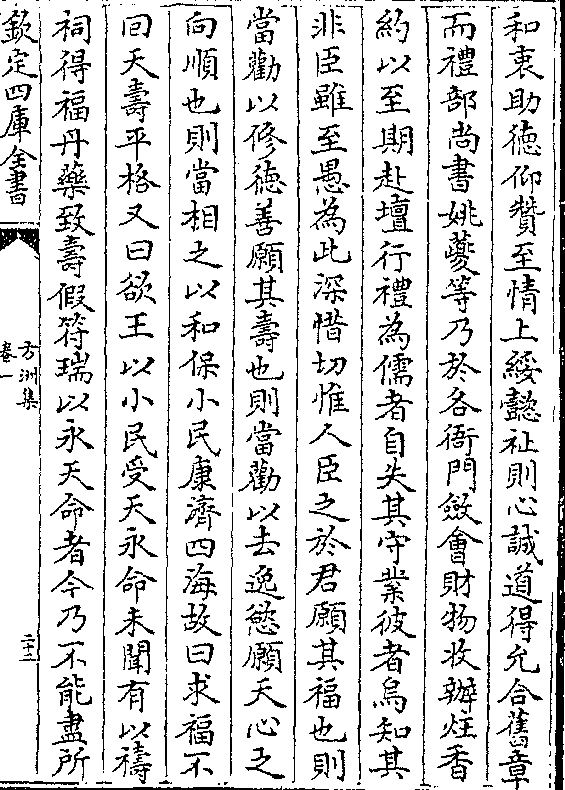 和衷助德仰贊至情上綏懿祉則心誠道得允合舊章
而禮部尚書姚夔等乃於各衙門斂會財物收辦炷香
約以至期赴壇行禮為儒者自失其守業彼者烏知其
非臣雖至愚為此深惜切惟人臣之於君願其福也則
當勸以修德善願其壽也則當勸以去逸慾願天心之
向順也則當相之以和保小民康濟四海故曰求福不
回天壽平格又曰欲王以小民受天永命未聞有以禱
祠得福丹藥致壽假符瑞以永天命者今乃不能盡所
欽定四庫全書
方洲集
卷一
二十三